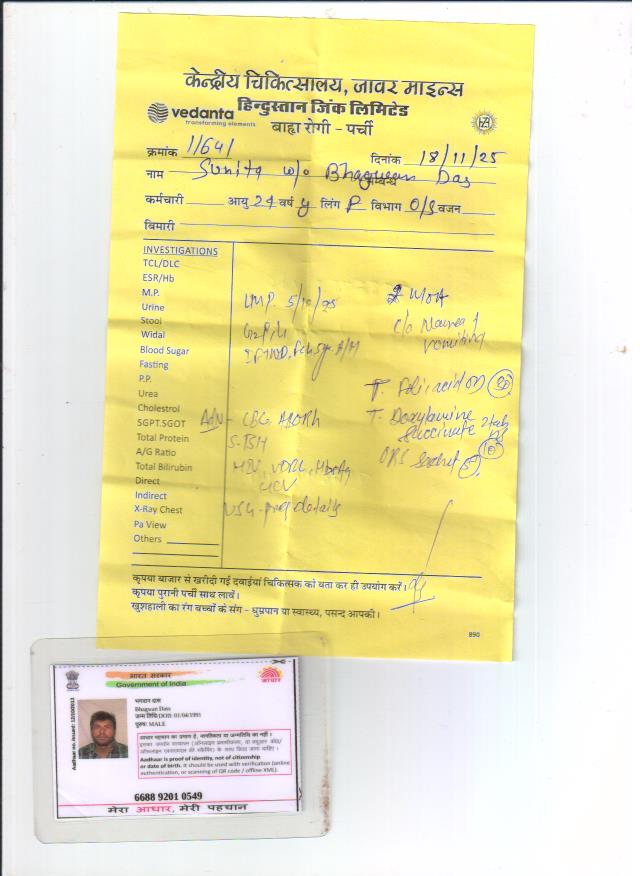 केन्द्रीय चिकित्सालय, जावर माइन्स
हिन्दुस्तान जिंक लिमिटेड
vedanta
transforming elements
बाह्य रोगी - पर्ची
क्रमांक 11641 दिनांक 18/11/25
नाम Sunita w/o Bhagwan Das
कर्मचारी आयु 24 वर्ष y लिंग F विभाग O/G वजन
बिमारी
INVESTIGATIONS
TCL/DLC
ESR/Hb
M.P.
Urine
Stool
Widal
Blood Sugar
Fasting
P.P.
Urea
Cholestrol
SGPT.SGOT
Total Protein
A/G Ratio
Total Bilirubin
Direct
Indirect
X-Ray Chest
Pa View
Others
LMP. 5/10/25
G2P1L1
Adv - CBC, ABORh
S. TSH
HIV, VDRL, HbsAg
HCV
USG - preg details
c/o Nausea &
vomiting
T. Folic acid OD 30
T. Doxylamine
Succinate 2tab
10
ORS sachet 5
कृपया बाजार से खरीदी गई दवाईयां चिकित्सक को बता कर ही उपयोग करें।
कृपया पुरानी पर्ची साथ लावें।
खुशहाली का रंग बच्चों के संग - धुम्रपान या स्वास्थ्य, पसन्द आपकी।
890
भारत सरकार
Government of India
आधार
Aadhaar no. issued: 12/10/2013
भगवान दास
Bhagwan Dass
जन्म तिथि/DOB: 01/04/1991
पुरुष/ MALE
आधार पहचान का प्रमाण है, नागरिकता या जन्मतिथि का नहीं।
Aadhaar is proof of identity, not of citizenship
or date of birth. It should be used with verification (online
authentication, or scanning of QR code / offline XML).
6688 9201 0549
मेरा आधार, मेरी पहचान